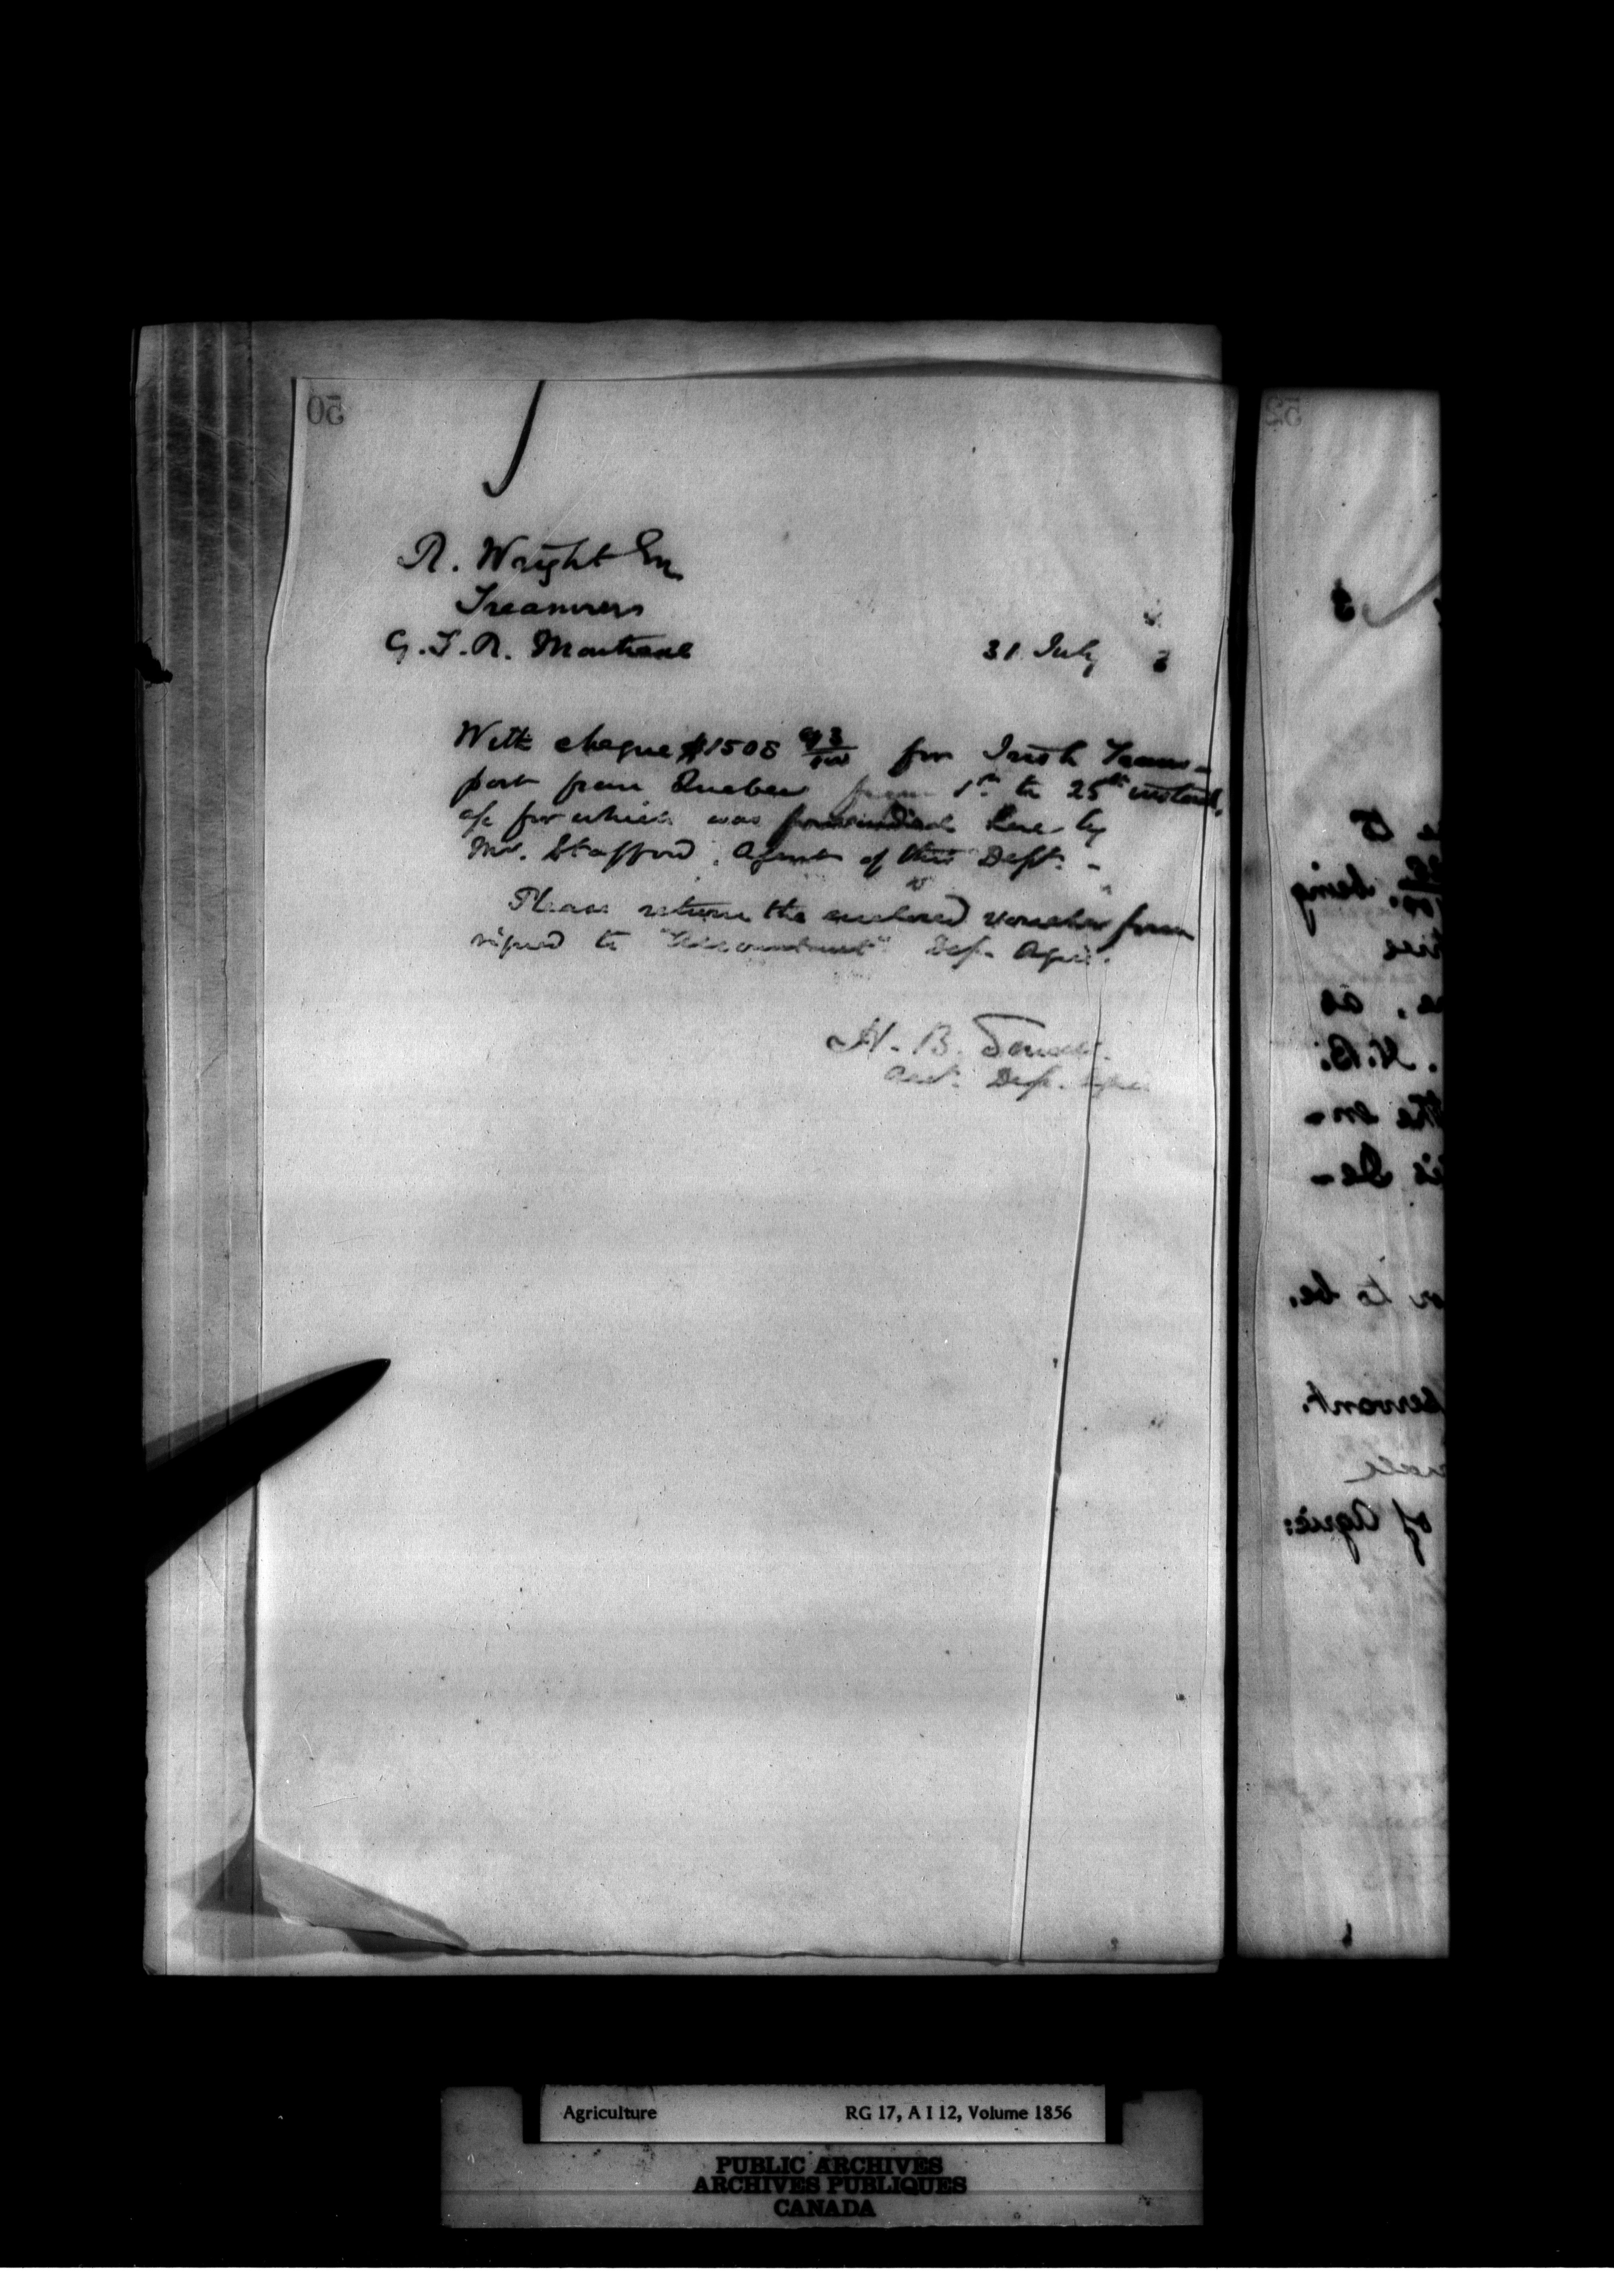 50
R. Wright Esq
Treasurer
G.T.R. Montreal
31 July 3
With cheque $1508 93/100 for Irish Trans-
port from Quebec from 1st to 25th instant,
a/c for which was forwarded here by
Mr. Stafford, Agent of this Dept. -
Please return the enclosed voucher form
signed to "Accountant" Dep. Agric.
H. B.
Acct. Dep. Agric.
52
$
to
being
as
N.B.
the en-
is De-
to be.
servant.
of Agric:
Agriculture RG 17, A I 12, Volume 1856
PUBLIC ARCHIVES
ARCHIVES PUBLIQUES
CANADA